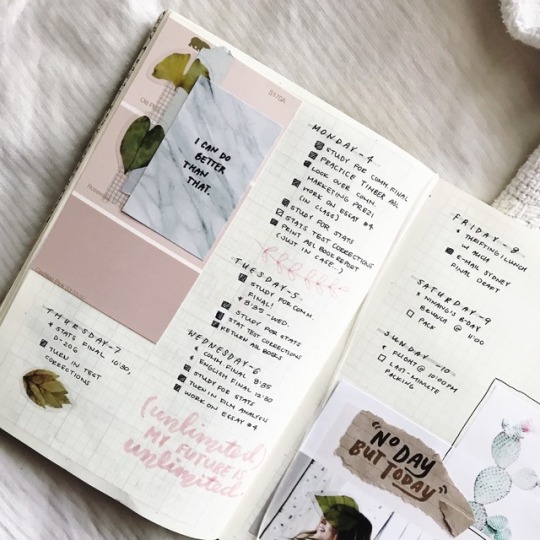 I CAN DO
BETTER
THAN
THAT.
MONDAY-4
STUDY FOR COMM. FINAL
PRACTICE TIMBER ASL
LOOK OVER COMM.
MARKETING PREZI
WORK ON ESSAY #4
(IN CLASS)
STUDY FOR STATS
STATS TEST CORRECTIONS
PRINT ASL BOOK REPORT
(JUST IN CASE...)
TUESDAY-5
STUDY FOR COMM
FINAL!
8:35-WED.
STUDY FOR STATS
STAT TEST CORRECTIONS
RETURN ASL BOOKS
WEDNESDAY-6
COMM FINAL 8:35
ENGLISH FINAL 12:50
STUDY FOR STATS
TURN IN FILM ANALYSIS
WORK ON ESSAY #4
THURSDAY-7
STATS FINAL 10:30,
D-206
TURN IN TEST
CORRECTIONS
(unlimited)
MY FUTURE IS
unlimited.
FRIDAY-8
THRIFTING/LUNCH
E-MAIL SYDNEY
FINAL DRAFT
SATURDAY-9
B-DAY
BRUNCH @ 11:00
PACK
SUNDAY-10
FLIGHT @ 10:00PM
LAST-MINUTE
PACKING
"NO DAY
BUT TODAY"